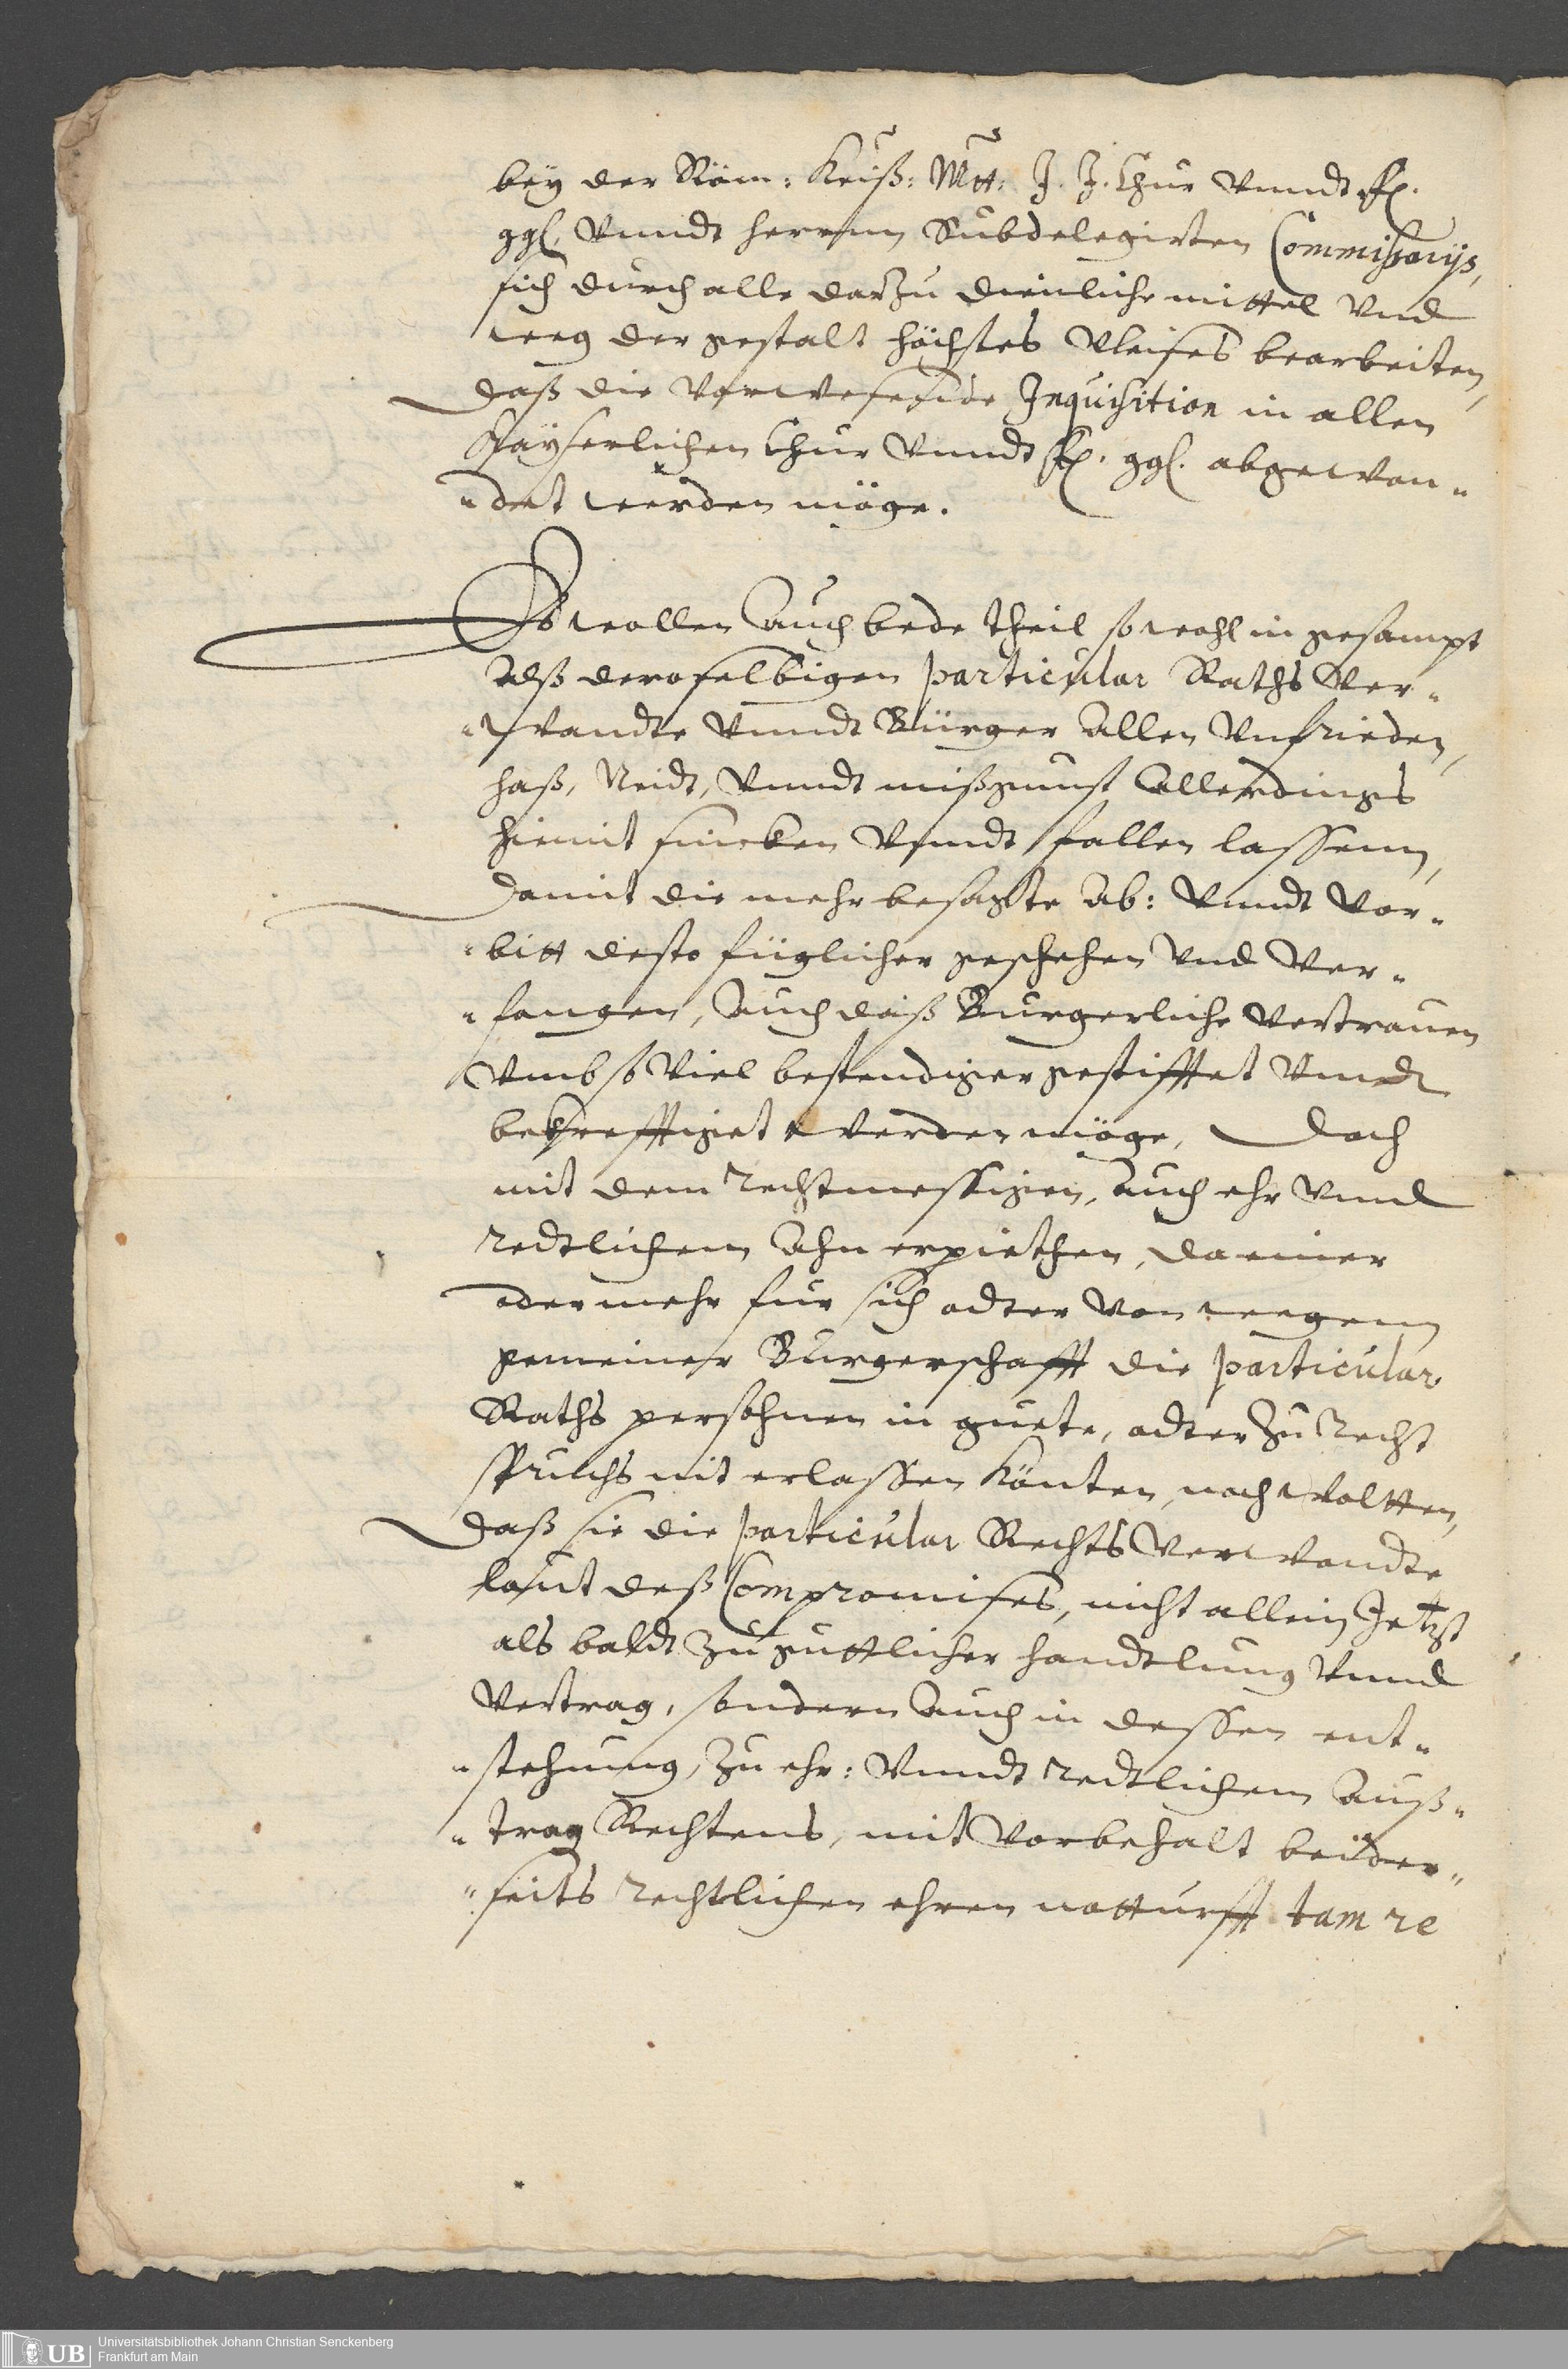 bey der Röm: Keiß: Mtt: J. J. Chur vnndt ff.
ggl. vnndt herrnn Subdelegirten Commissarijs,
sich durch alle darzu dienliche mittel vnd
weeg der gestalt höchstes vleises bearbeiten,
daß die vorwesende Inquisition in allen
Kayserlichen Chur vnndt ff. ggl. abgewen„
„det werden möge.
So wollen Auch bede theil so wohl in gesampt
Alß deroselbigen particular Raths Ver„
„wandte vnndt Bürger Allen vnfrieden,
haß, Neidt, vnndt mißgunst Allerdings
hiemit sincken vnndt fallen lassenn,
Damit die mehr besagte Ab: vnndt Vor„
„bitt desto füglicher geschehen vnd Ver„
„fangen, Auch daß Burgerliche vertrauen
vmb so viel bestendiger gestifftet vnndt
bekrefftiget werden möge, Doch
mit dem rechtmessigen, Auch ehr vnnd
redtlichem Ahn erpiethen, da einer
oder mehr fur sich odter von weegenn
gemeiner Burgerschafft die particular
Raths persohnen in guete, odter zu Recht
spruchs nit erlassen könten, noch woltten,
daß sie die particular Rechts verwandte
laut deß Compromises, nicht allein Jetzt
als baldt zu guttlicher handtlung vnnd
Vertrag, sondern Auch in dessen ent„
„stehung, zu ehr: vnndt redtlichem Auß„
„trag Rechtens, mit Vorbehalt beider„
„seits rechtlichen ehren notturfft tam re
UB
Universitätsbibliothek Johann Christian Senckenberg
Frankfurt am Main